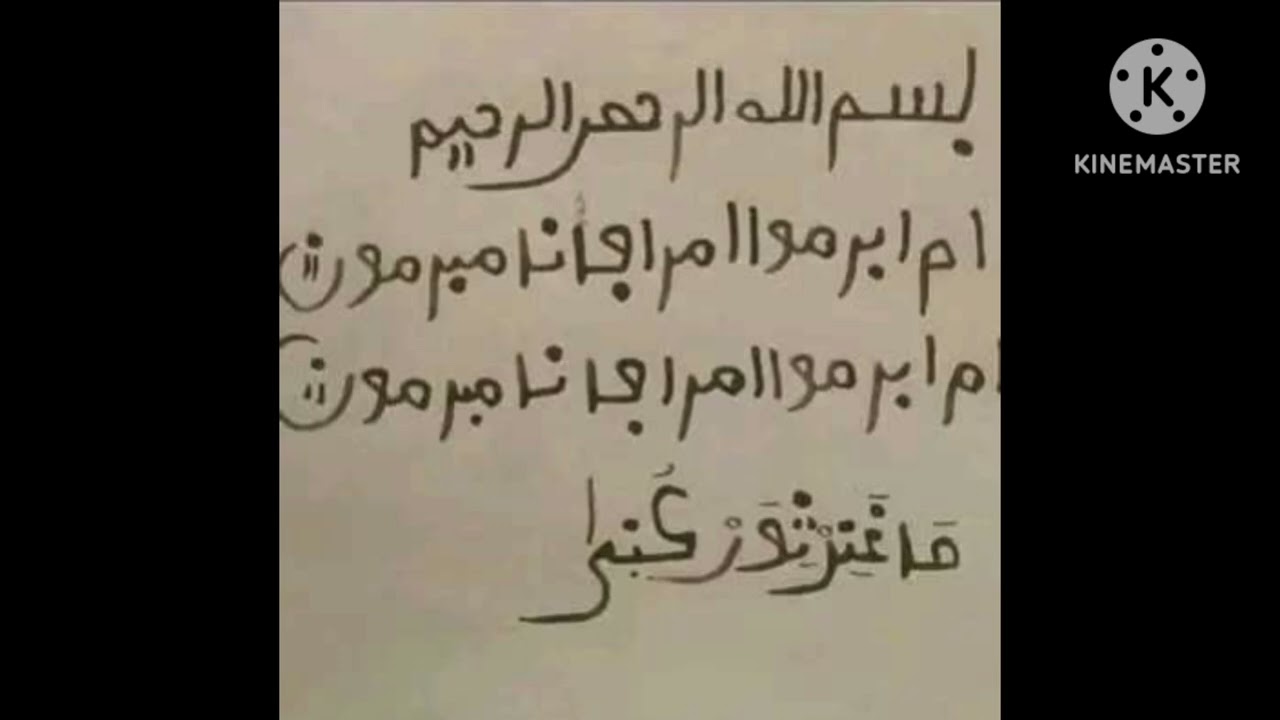 بسم الله الرحمن الرحيم
ام ابرموا امرا فإنا مبرمون
ام ابرموا امرا فانا مبرمون
مَا غَتِرْ
KINEMASTER